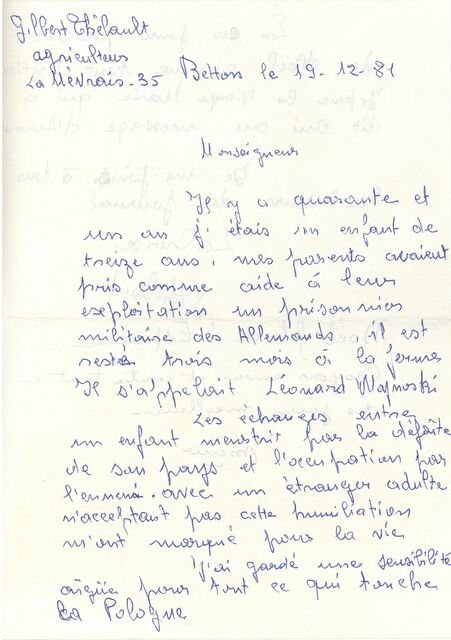 Gilbert Thébault
agriculteur
La Mévrais - 35 Betton le 19-12-81
Monseigneur
Il y a quarante et
un an j'étais un enfant de
treize ans, mes parents avaient
pris comme aide à leur
exploitation un prisonnier
militaire des Allemands, il est
resté trois mois à la ferme
Il s'appelait Léonard Wajnoski
Les échanges entre
un enfant meurtri par la défaite
de son pays et l'occupation par
l'ennemi. avec un étranger adulte
n'acceptant pas cette humiliation
m'ont marqué pour la vie
J'ai gardé une sensibilité
aigüe pour tout ce qui touche
La Pologne